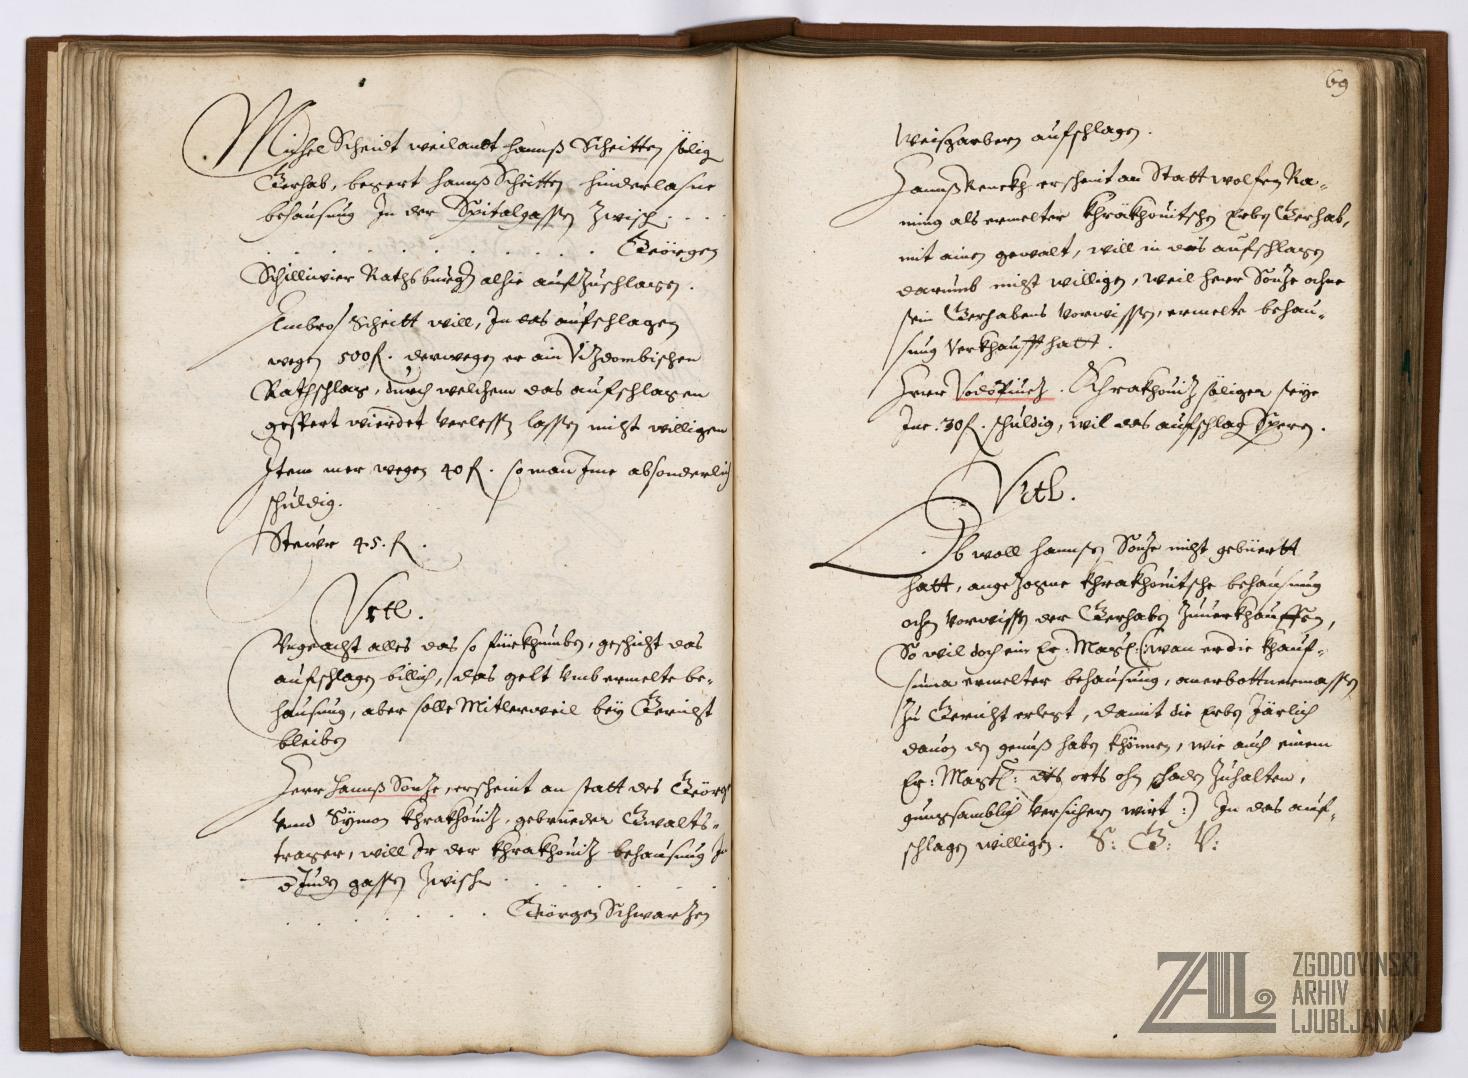 Michel Scheidt weilandt Hannß Scheitten sölig
Gerhab, begert Hannß Scheitten hinderlasne
behausung In der Spitalgassen zwisch. . . .
. . . . . . . . . . . Geörgen
Schillinier Rathsburgn alhie aufzuschlagen.
Ambros Scheitt will, In das aufschlagen
wegen 500 fl. derwegen er ain Vizdombischen
Rathschlag, durch welchem das aufschlagen
gespert wierdet verlessn lassen nicht willigen
Item mer wegen 40 fl. so man Ime absonderlich
schuldig.
Steuer 45. fl.
Vrtl.
Vngeacht alles das so fürkhumben, geschicht das
aufschlagen billich, das gelt vmb ermelte be-
hausung, aber solle Mitlerweil bey Gericht
bleiben
Herr Hannß Sonze, erscheint an statt des Geörg
vnnd Symon Khrakhouiz, gebrueder Gwalts-
trager, will Ir der Khrakhouiz behausung In
d Juden gassen zwischn . . . . . .
. . . . . . Geörgen Schwarzen
69
Weisgarbern aufschlagen.
Hannß Renckh erscheint an Statt Wolfen Ra-
ming als ermelter Khräkhouitschen Erben Gerhab,
mit ainen gewalt, will in das aufschlagen
darumb nicht willigen, weil herr Sonze ohne
sein Gerhabens vorwissen, ermelte behau-
sung verkhaufft hatt.
Herr Vodopiuez. Khrakhouiz söliger seye
Ime 30 fl. schuldig, wil das aufschlag Speren.
Vrtl.
Ob woll Hannsen Sonze nicht gebüertt
hatt, angezogne Khrakhouitsche behausung
ohn vorwissen der Gerhaben zuuerkhauffen,
So wil doch ein Er: Magl: (:wan er die khauf-
suma ermelter behausung, anerbottnermassen
zu Gericht erlegt, damit die Erben Järlich
dauon den genuß haben khönnen, wie auch einem
Er: Magl: dits orts ohn schaden zuhalten,
gnuegsamblich versichern wirt:) In das auf-
schlagen willigen. S: G: V:
ZAL ZGODOVINSKI
ARHIV
LJUBLJANA